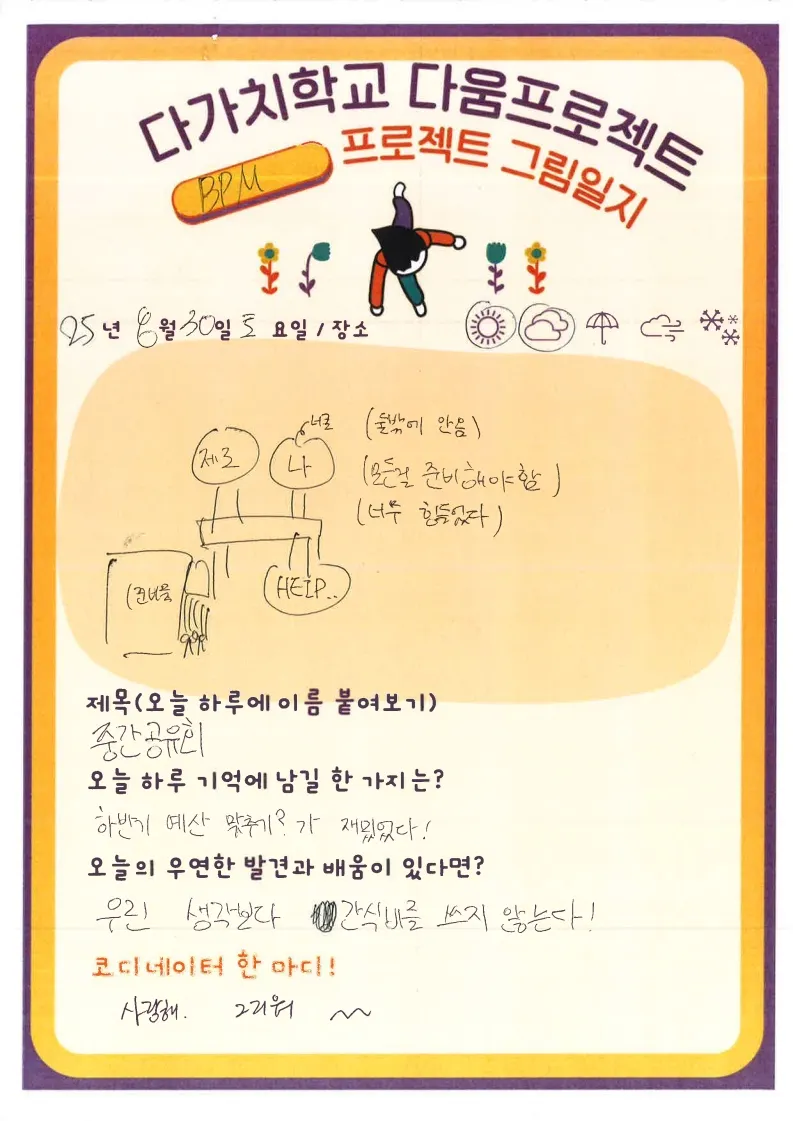 다가치학교 다움프로젝트
프로젝트 그림일지
BPM
25년 8월 30일 토 요일 / 장소
너굴
제로
나
(둘밖에 안옴)
(모든걸 준비해야함)
(너무 힘들었다)
(준비물
HElP..
제목(오늘 하루에 이름 붙여보기)
중간공유회
오늘 하루 기억에 남길 한 가지는?
하반기 예산 맞추기? 가 재밌었다!
오늘의 우연한 발견과 배움이 있다면?
우린 생각보다 간식비를 쓰지 않는다!
코디네이터 한 마디!
사랑해. 그리워 ~~